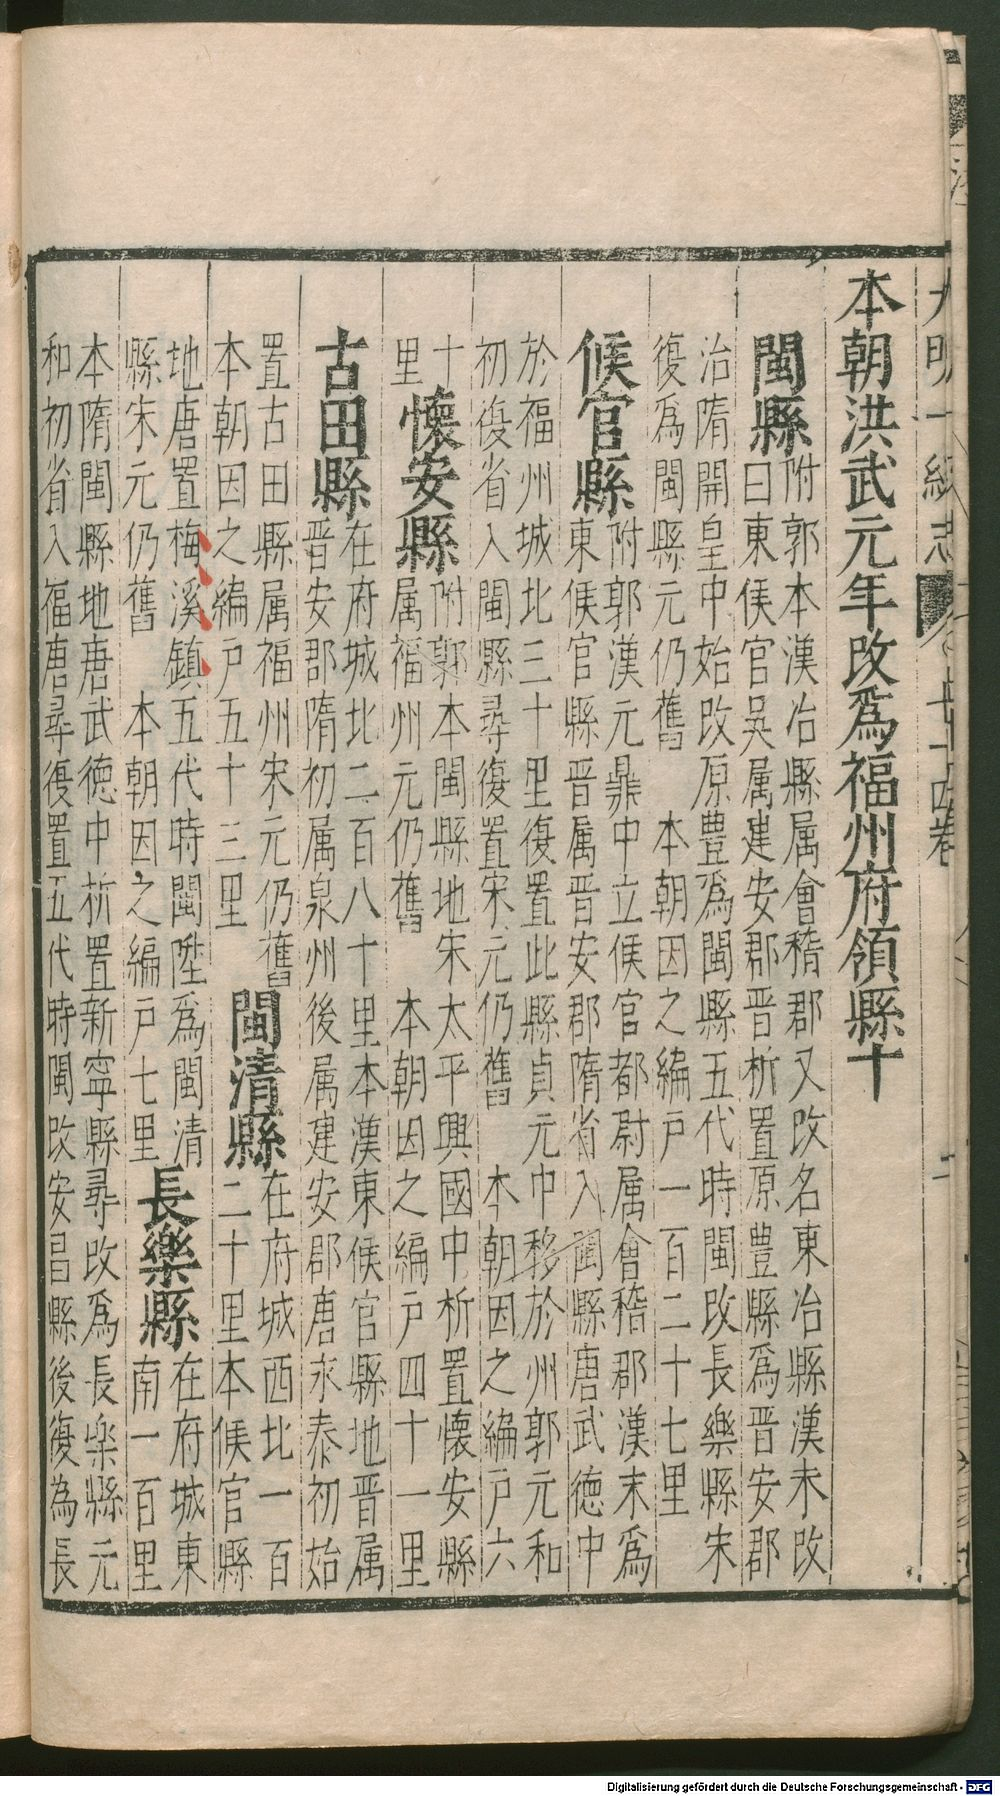 大明一統志 卷七十四卷
本朝洪武元年改爲福州府領縣十
閩縣
附郭本漢冶縣属會稽郡又改名東冶縣漢末改
曰東侯官吳属建安郡晋析置原豊縣爲晋安郡
治隋開皇中始改原豊爲閩縣五代時閩改長樂縣宋
復爲閩縣元仍舊 本朝因之編戸一百二十七里
候官縣
附郭漢元鼎中立候官都尉属會稽郡漢末爲
東侯官縣晋属晋安郡隋省入閩縣唐武德中
於福州城北三十里復置此縣貞元中移於州郭元和
初復省入閩縣尋復置宋元仍舊 本朝因之編戸六
十
里
懷安縣
附郭本閩縣地宋太平興國中析置懷安縣
属福州元仍舊 本朝因之編戸四十一里
古田縣
在府城北二百八十里本漢東候官縣地晋属
晋安郡隋初属泉州後属建安郡唐永泰初始
置古田縣属福州宋元仍舊
本朝因之編戸五十三里
閩清縣
在府城西北一百
二十里本候官縣
地唐置梅溪鎮五代時閩陞爲閩清
縣宋元仍舊 本朝因之編戸七里
長樂縣
在府城東
南一百里
本隋閩縣地唐武德中析置新寧縣尋改爲長樂縣元
和初省入福唐尋復置五代時閩改安昌縣後復為長
Digitalisierung gefördert durch die Deutsche Forschungsgemeinschaft - DFG